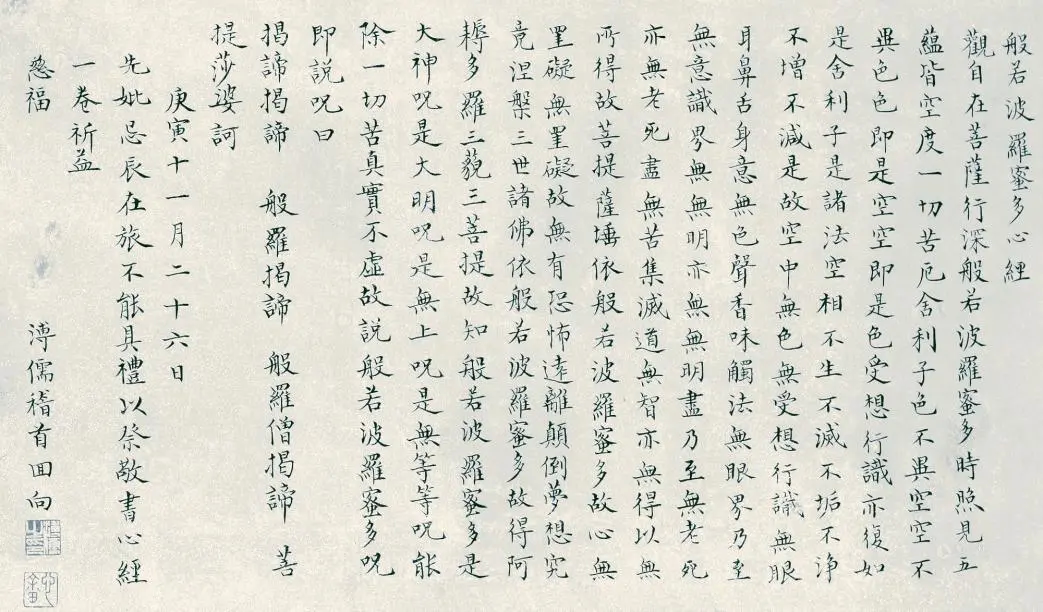 般若波羅蜜多心經
觀自在菩薩行深般若波羅蜜多時照見五
蘊皆空度一切苦厄舍利子色不異空空不
異色色即是空空即是色受想行識亦復如
是舍利子是諸法空相不生不滅不垢不淨
不增不減是故空中無色無受想行識無眼
耳鼻舌身意無色聲香味觸法無眼界乃至
無意識界無無明亦無無明盡乃至無老死
亦無老死盡無苦集滅道無智亦無得以無
所得故菩提薩埵依般若波羅蜜多故心無
罣礙無罣礙故無有恐怖遠離顛倒夢想究
竟涅槃三世諸佛依般若波羅蜜多故得阿
耨多羅三藐三菩提故知般若波羅蜜多是
大神咒是大明咒是無上咒是無等等咒能
除一切苦真實不虛故說般若波羅蜜多咒
即說咒曰
揭諦揭諦 般羅揭諦 般羅僧揭諦 菩
提莎婆訶
庚寅十一月二十六日
先妣忌辰在旅不能具禮以祭敬書心經
一卷祈益
慈福
溥儒稽首回向